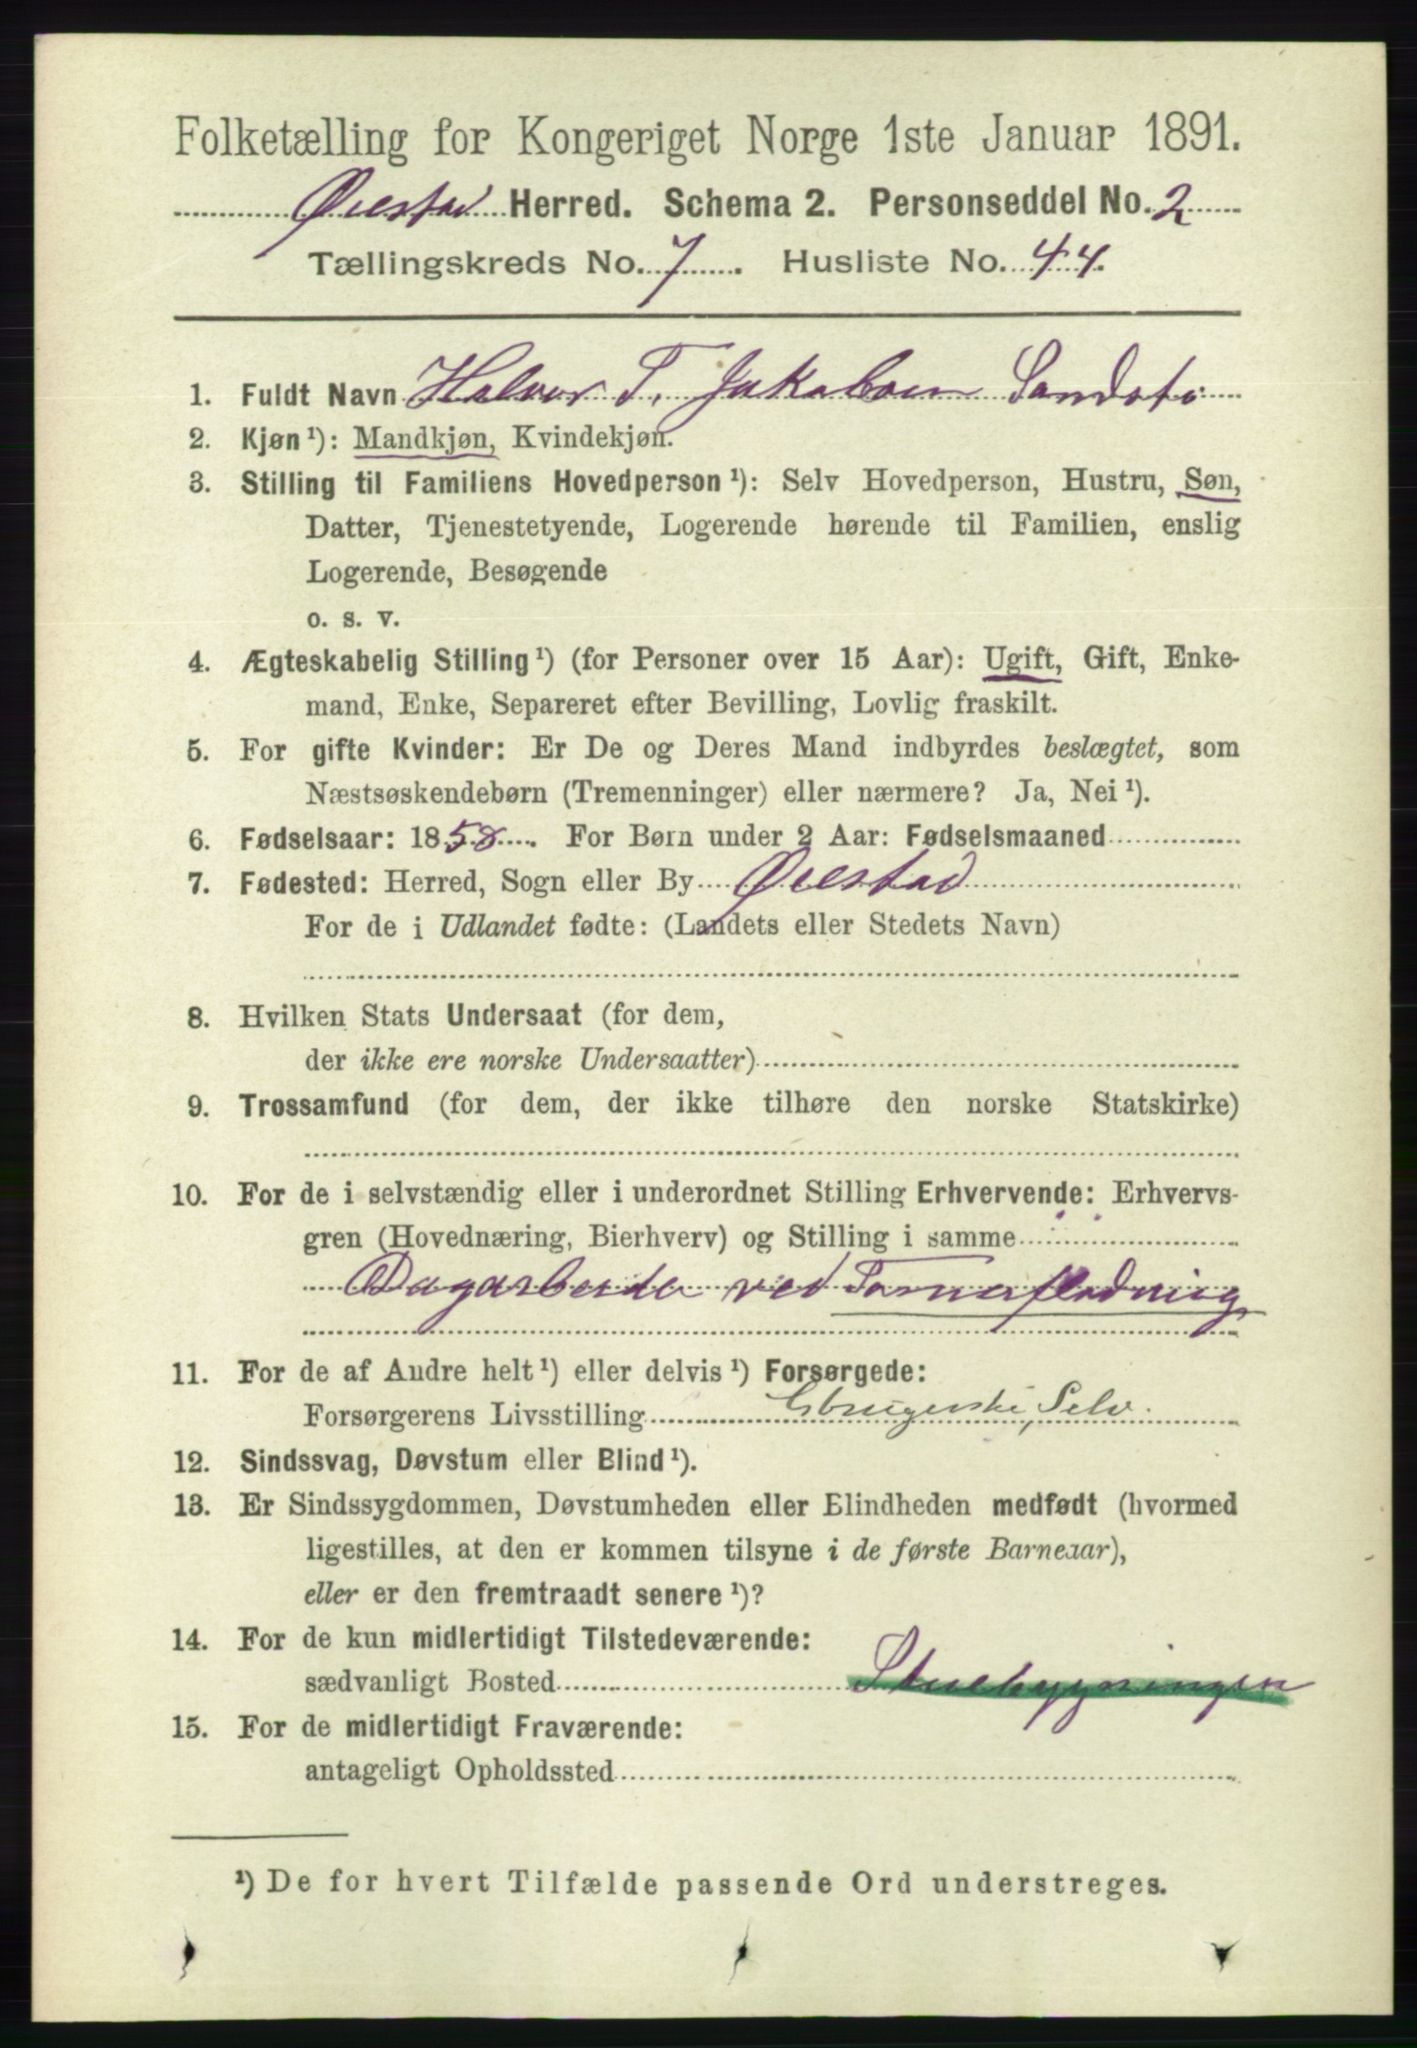 Folketælling for Kongeriget Norge 1ste Januar 1891.
Øiestad Herred. Schema 2. Personseddel No. 2
Tællingskreds No. 7. Husliste No. 44.
1. Fuldt Navn Halvor T. Jakobsen Sandstø
2. Kjøn ¹): Mandkjøn, Kvindekjøn.
3. Stilling til Familiens Hovedperson ¹): Selv Hovedperson, Hustru, Søn,
Datter, Tjenestetyende, Logerende hørende til Familien, enslig
Logerende, Besøgende
o. s. v.
4. Ægteskabelig Stilling ¹) (for Personer over 15 Aar): Ugift, Gift, Enke-
mand, Enke, Separeret efter Bevilling, Lovlig fraskilt.
5. For gifte Kvinder: Er De og Deres Mand indbyrdes beslægtet, som
Næstsøskendebørn (Tremenninger) eller nærmere? Ja, Nei ¹).
6. Fødselsaar: 1858. For Børn under 2 Aar: Fødselsmaaned
7. Fødested: Herred, Sogn eller By Øiestad
For de i Udlandet fødte: (Landets eller Stedets Navn)
8. Hvilken Stats Undersaat (for dem,
der ikke ere norske Undersaatter)
9. Trossamfund (for dem, der ikke tilhøre den norske Statskirke)
10. For de i selvstændig eller i underordnet Stilling Erhvervende: Erhvervs-
gren (Hovednæring, Bierhverv) og Stilling i samme
Dagarbeide ved
11. For de af Andre helt ¹) eller delvis ¹) Forsørgede:
Forsørgerens Livsstilling Selv.
12. Sindssvag, Døvstum eller Blind ¹).
13. Er Sindssygdommen, Døvstumheden eller Blindheden medfødt (hvormed
ligestilles, at den er kommen tilsyne i de første Barneaar),
eller er den fremtraadt senere ¹)?
14. For de kun midlertidigt Tilstedeværende:
sædvanligt Bosted Stuebygningen
15. For de midlertidigt Fraværende:
antageligt Opholdssted
¹) De for hvert Tilfælde passende Ord understreges.